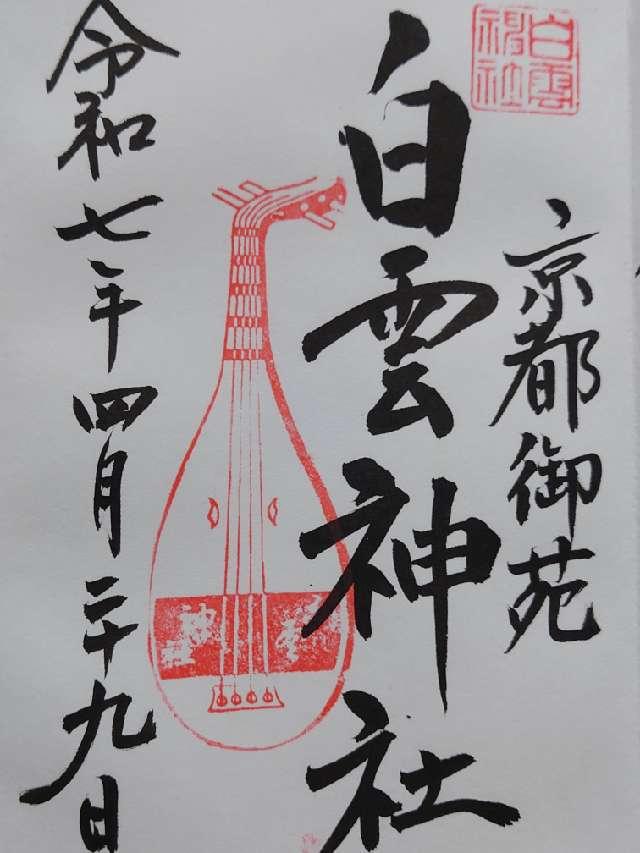 白雲神社
京都御苑
白雲神社
令和七年四月二十九日
神社